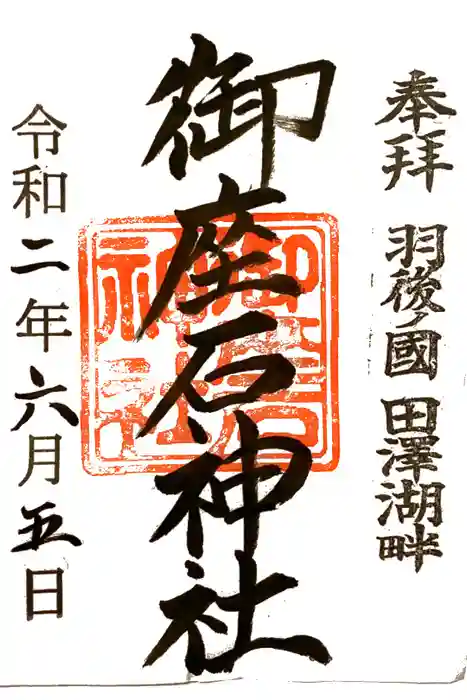 奉拝 羽後ノ國 田澤湖畔
御座石神社
御座石
神社
令和二年六月五日